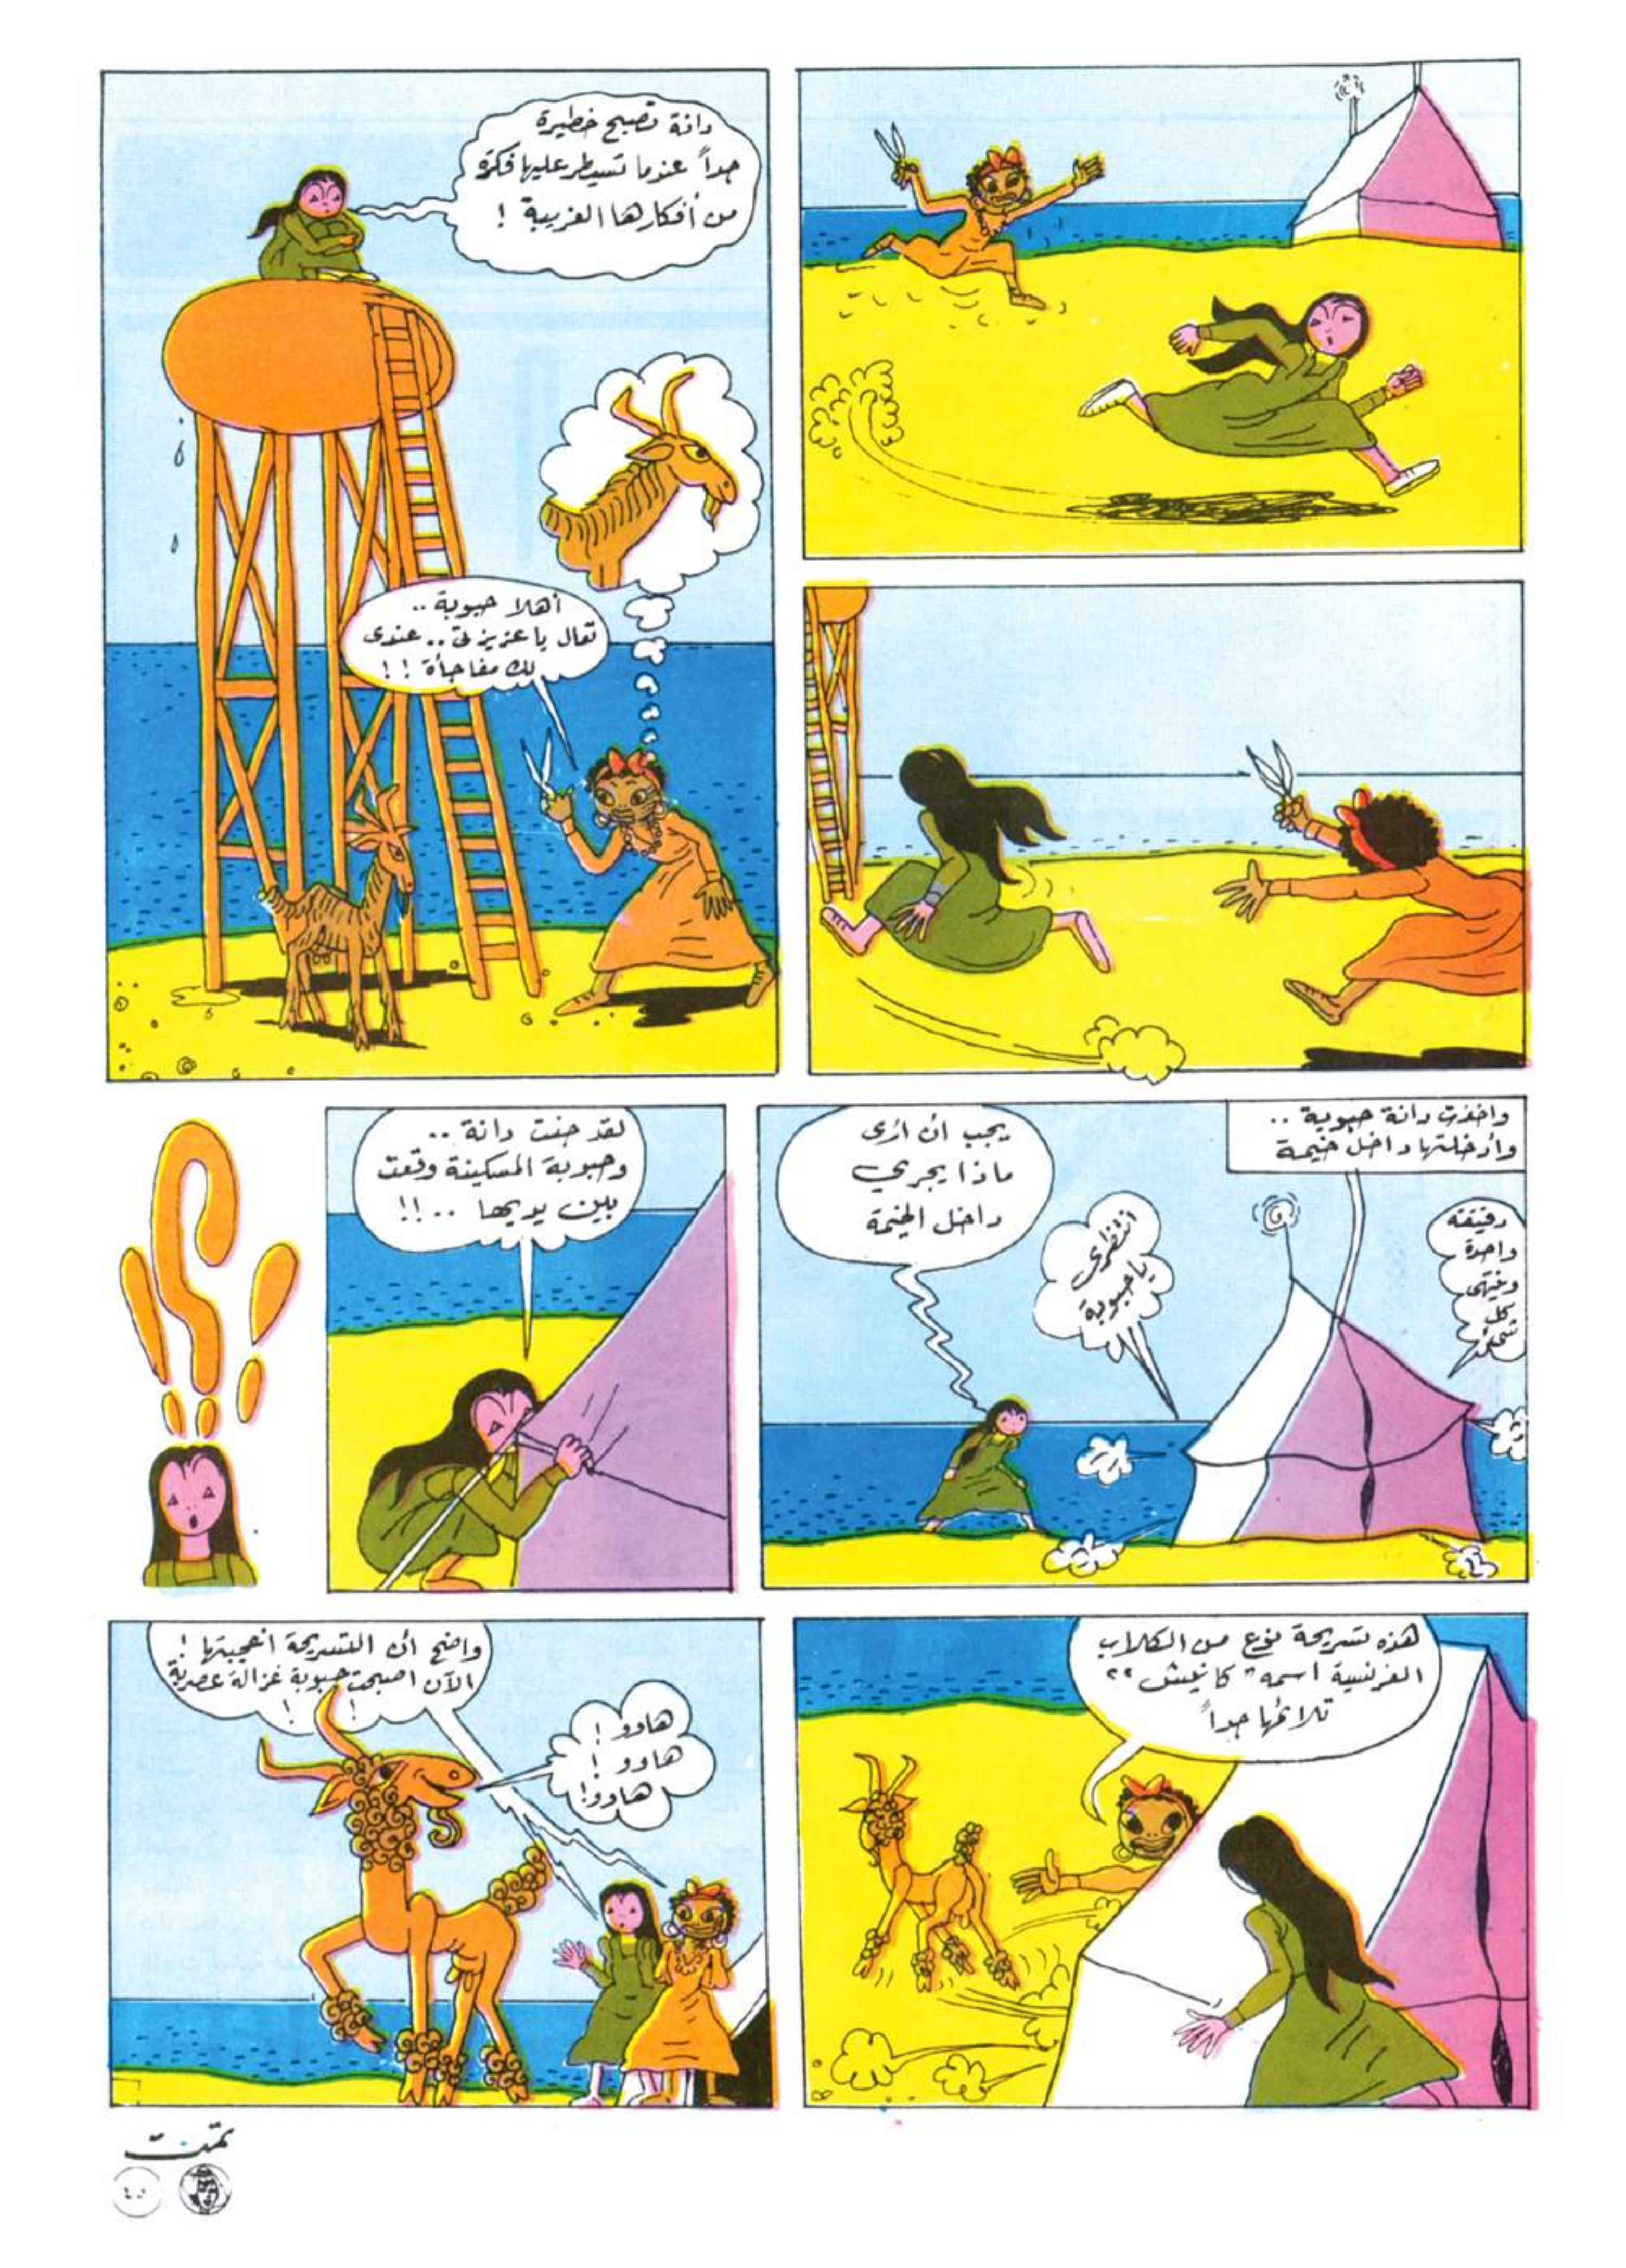 دانة تصبح خطيرة
جداً عندما تسيطر عليها فكرة
من أفكارها الغريبة !
أهلا حبوبة ..
تعال يا عزيزتي .. عندى
لك مفاجأة ! !
واخذت دانة حبوبة ..
وأدخلتها داخل خيمة
دقيقة
واحدة
وينتهي
كل
شئ
انتظرى
يا حبوبة
يجب ان ارى
ماذا يجري
داخل الخيمة
لقد جنت دانة ..
وحبوبة المسكينة وقعت
بين يديها .. !!
هذه تسريحة نوع من الكلاب
الفرنسية اسمه " كانيش "
تلائمها جداً
واضح ان التسريحة اعجبتها !
الآن اصبحت حبوبة غزالة عصرية
! !
هاوو !
هاوو !
هاوو !
تمت